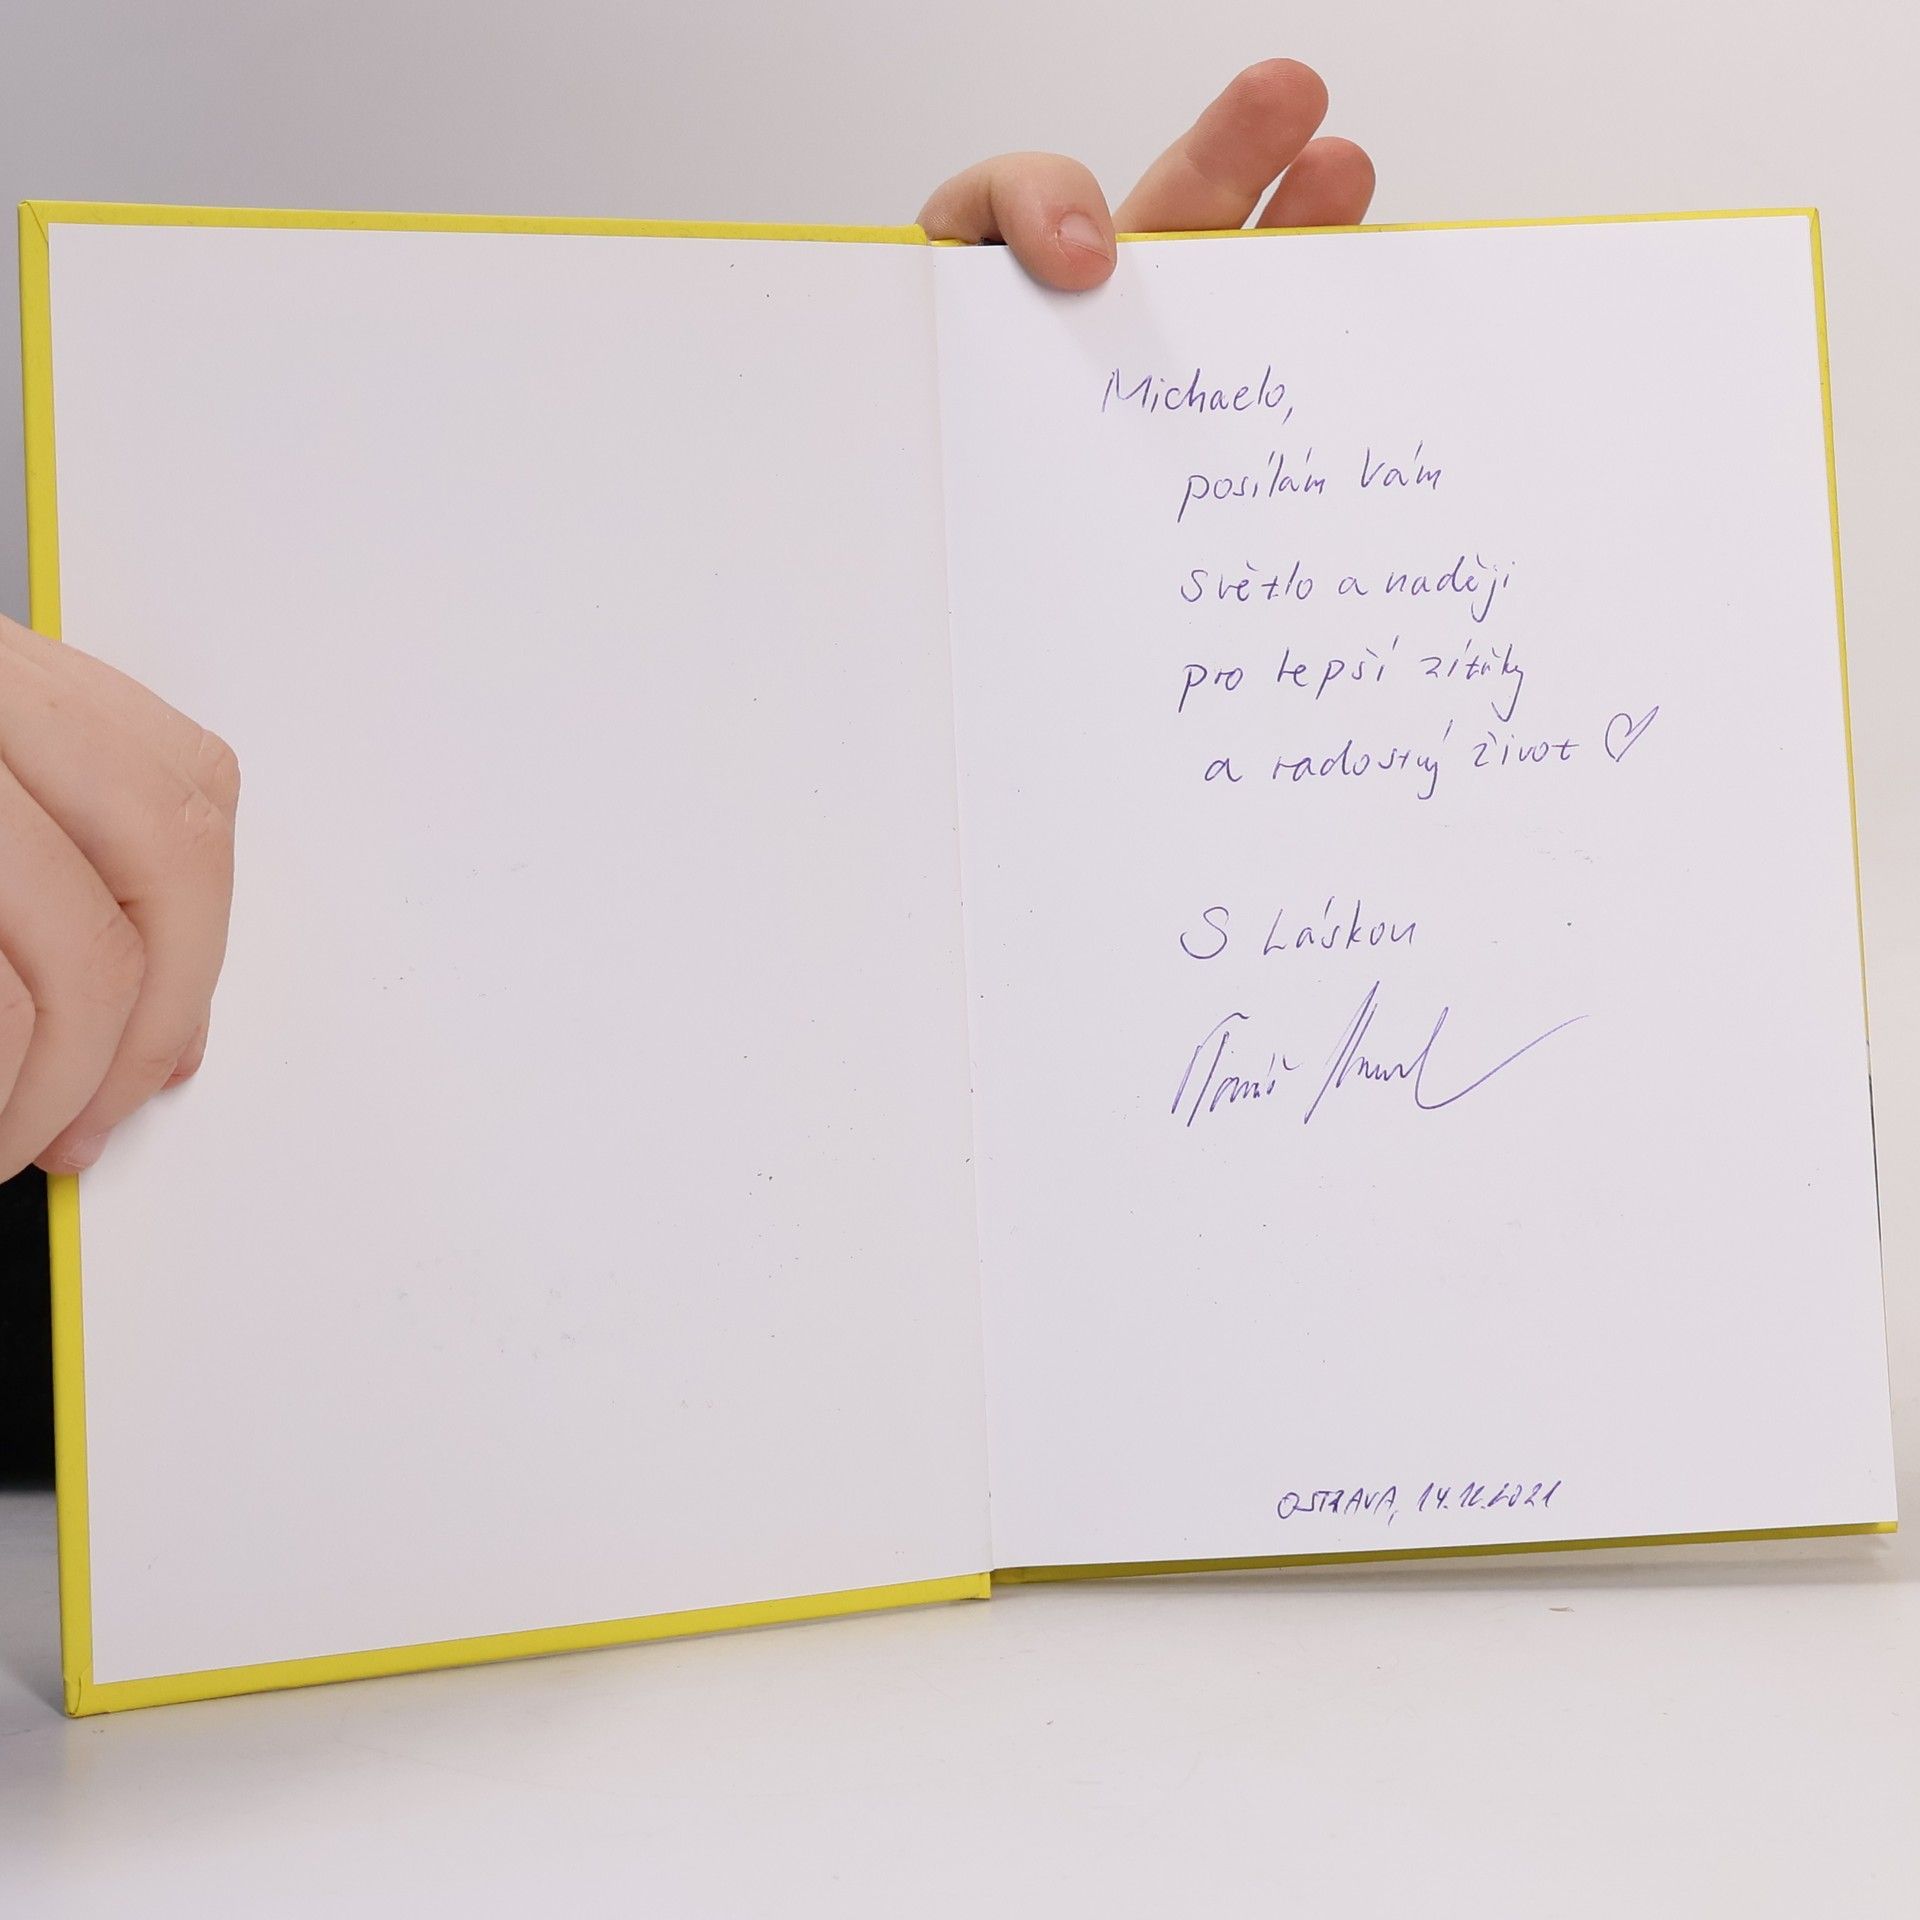 Michaelo,
posílám Vám
světlo a naději
pro lepší zítřky
a radostný život ♡
S Láskou
Tomáš
OSTRAVA, 14.12.2021